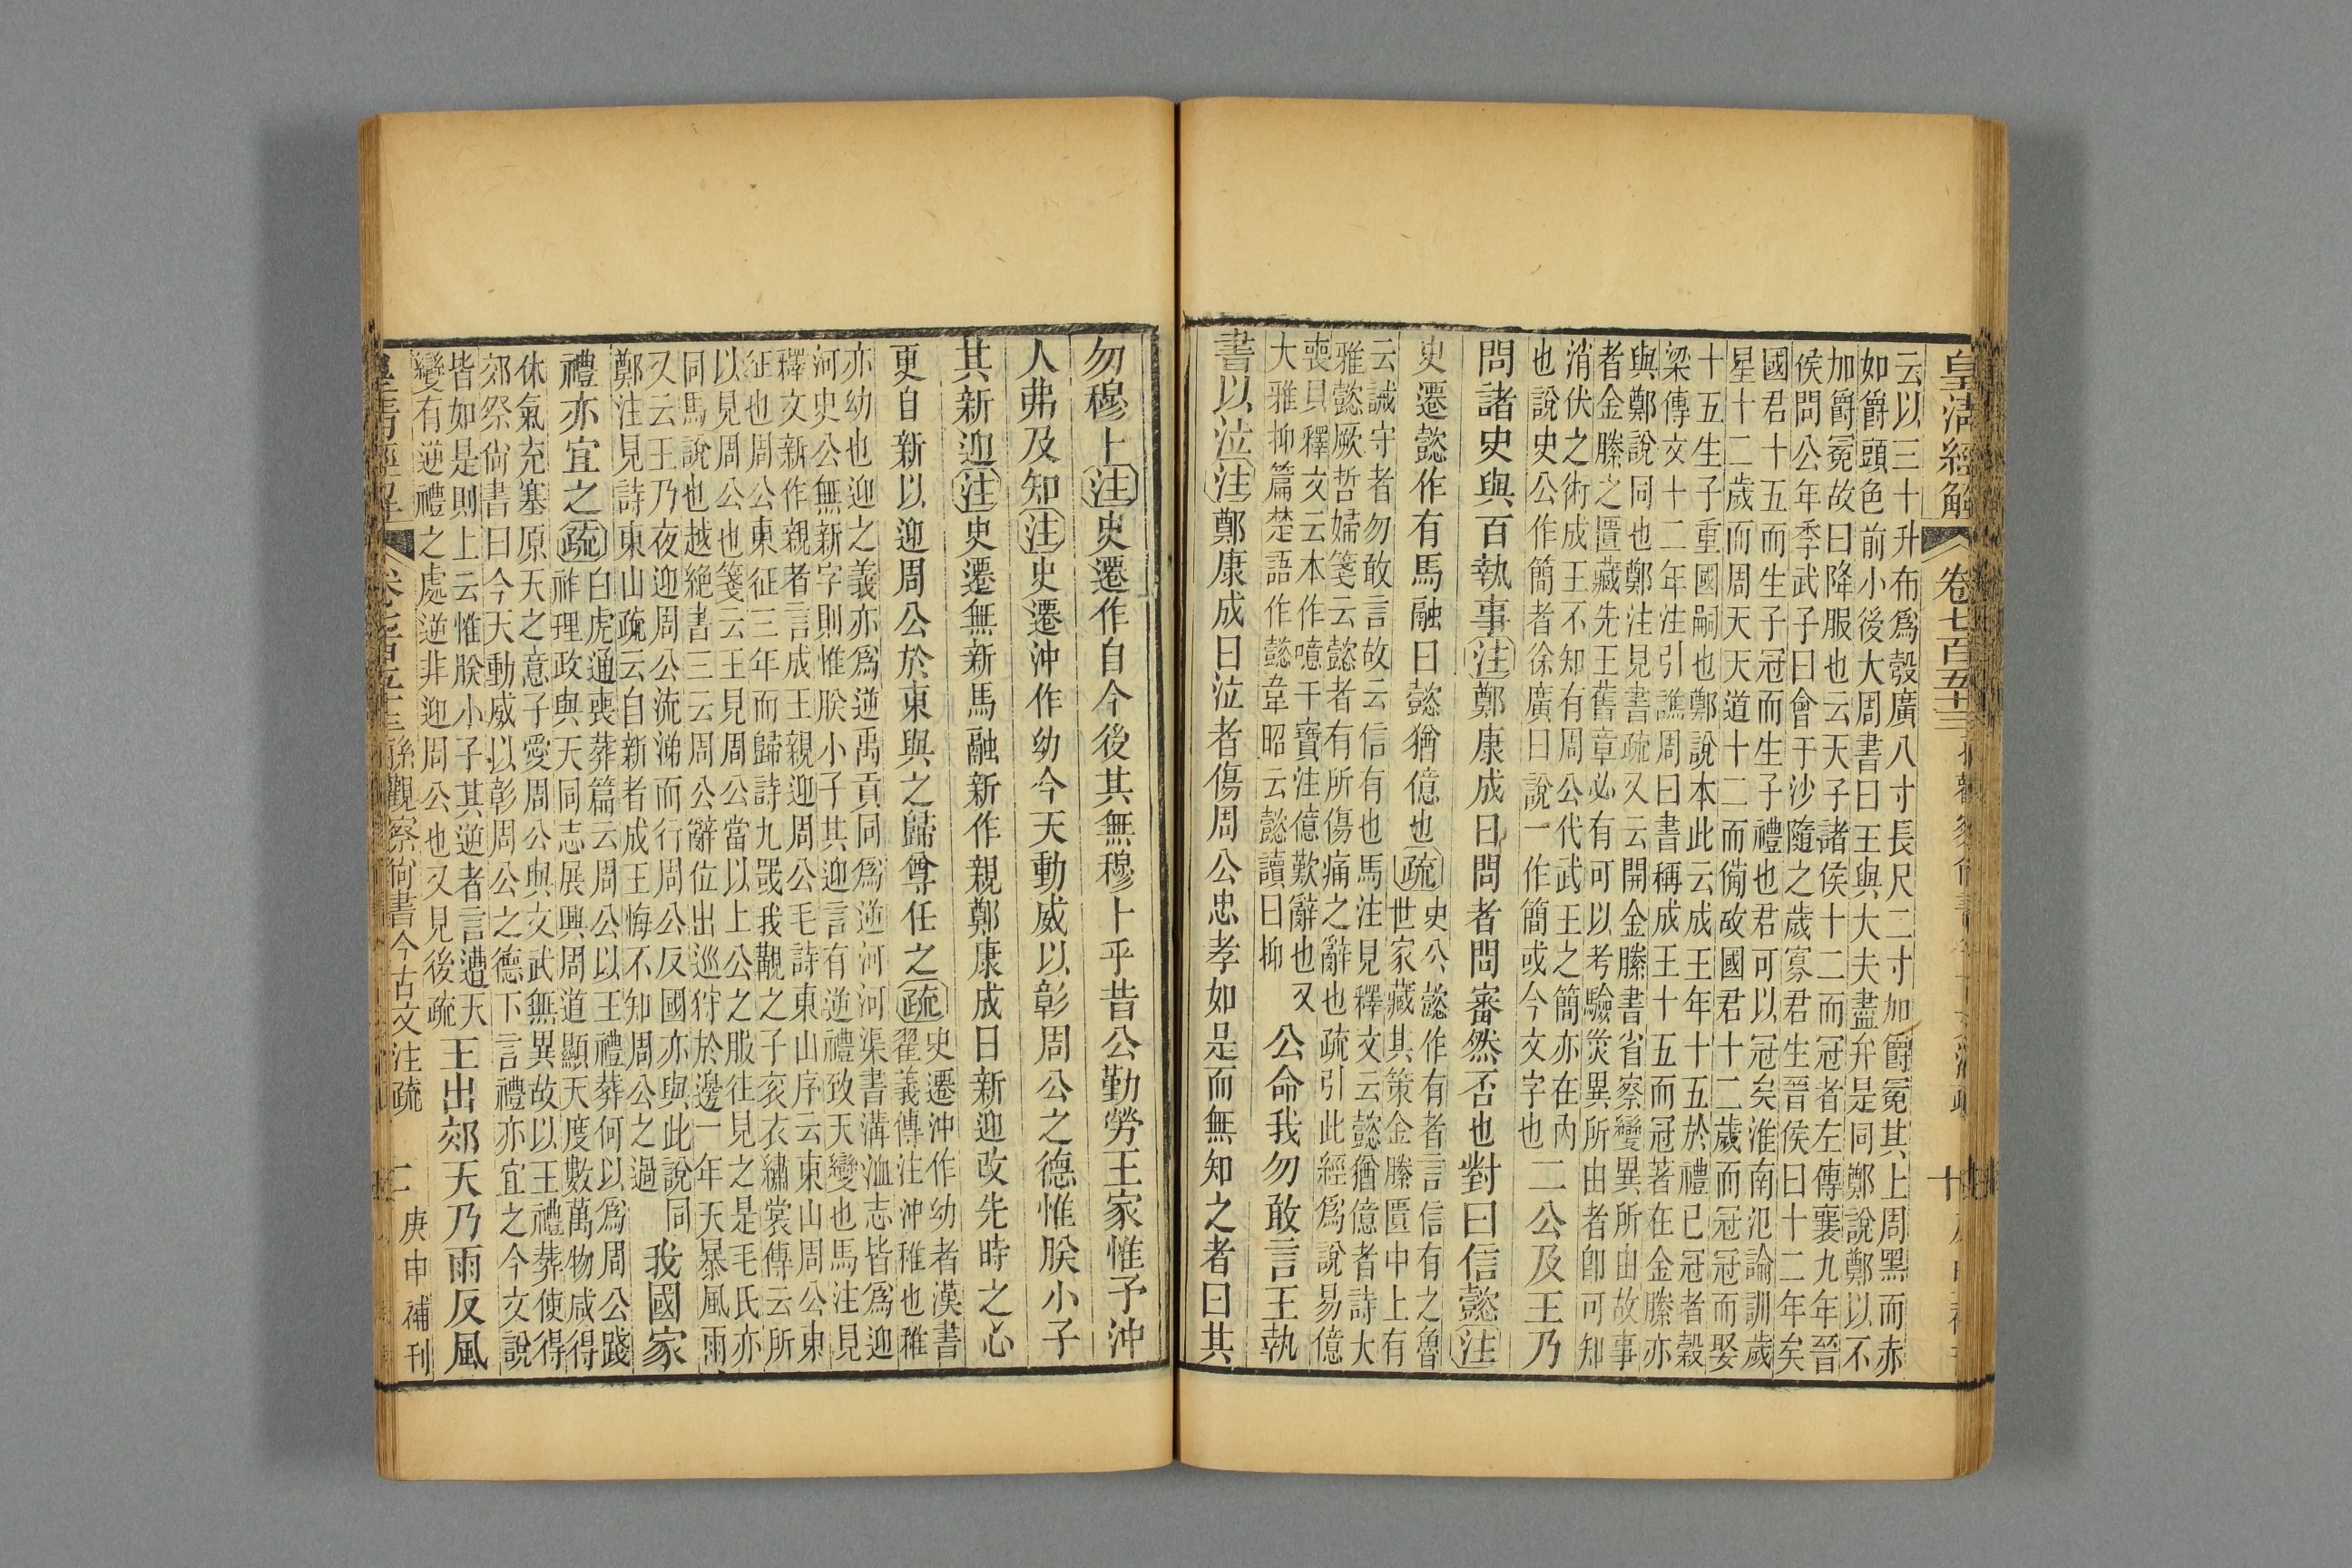 皇清經解 卷七百五十三
云以三十升布爲㲉廣八寸長尺二寸加爵冕其上周黑而赤
如爵頭色前小後大周書曰王與大夫盡弁是同鄭說鄭以不
加爵冕故曰降服也云天子諸侯十二而冠者左傳襄九年晉
侯問公年季武子曰會于沙隨之歲寡君生晉侯曰十二年矣
國君十五而生子冠而生子禮也君可以冠矣淮南氾論訓歲
星十二歲而周天天道十二而備故國君十二歲而冠冠而娶
十五生子重國嗣也鄭說本此云成王年十五於禮已冠者穀
梁傳文十二年注引譙周曰書稱成王十五而冠著在金縢亦
與鄭說同也鄭注見書疏又云開金縢書省察變異所由故事
者金縢之匱藏先王舊章必有可以考驗災異所由者卽可知
消伏之術成王不知有周公代武王之簡亦在內
也說史公作簡者徐廣曰說一作簡或今文字也
二公及王乃
問諸史與百執事注鄭康成曰問者問審然否也對曰信懿注
史遷懿作有馬融曰懿猶億也疏
史公懿作有者言信有之魯
世家藏其策金縢匱中上有
云誡守者勿敢言故云信有也馬注見釋文云懿猶億者詩大
雅懿厥哲婦箋云懿者有所傷痛之辭也疏引此經爲說易億
喪貝釋文云本作噫干寶注億歎辭也又
大雅抑篇楚語作懿韋昭云懿讀曰抑
公命我勿敢言王執
書以泣注鄭康成曰泣者傷周公忠孝如是而無知之者曰其
勿穆卜注史遷作自今後其無穆卜乎昔公勤勞王家惟予沖
人弗及知注史遷沖作幼今天動威以彰周公之德惟朕小子
其新迎注史遷無新馬融新作親鄭康成曰新迎改先時之心
更自新以迎周公於東與之歸尊任之疏
史遷沖作幼者漢書
翟義傳注沖稚也稚
亦幼也迎之義亦爲逆禹貢同爲逆河河渠書溝洫志皆爲迎
河史公無新字則惟朕小子其迎言有逆禮致天變也馬注見
釋文新作親者言成王親迎周公毛詩東山序云東山周公東
征也周公東征三年而歸詩九罭我覯之子袞衣繡裳傳云所
以見周公也箋云王見周公當以上公之服往見之是毛氏亦
同馬說也越絕書三云周公辭位出巡狩於邊一年天暴風雨
又云王乃夜迎周公流涕而行周公反國亦與此說同
鄭注見詩東山疏云自新者成王悔不知周公之過
我國家
禮亦宜之疏
白虎通喪葬篇云周公以王禮葬何以爲周公踐
祚理政與天同志展興周道顯天度數萬物咸得
休氣充塞原天之意子愛周公與文武無異故以王禮葬使得
郊祭尚書曰今天動威以彰周公之德下言禮亦宜之今文說
皆如是則上云惟朕小子其逆者言遭天
變有逆禮之處逆非迎周公也又見後疏
王出郊天乃雨反風
皇清經解 卷七百五十三 孫觀察尚書今古文注疏 二 庚申補刊